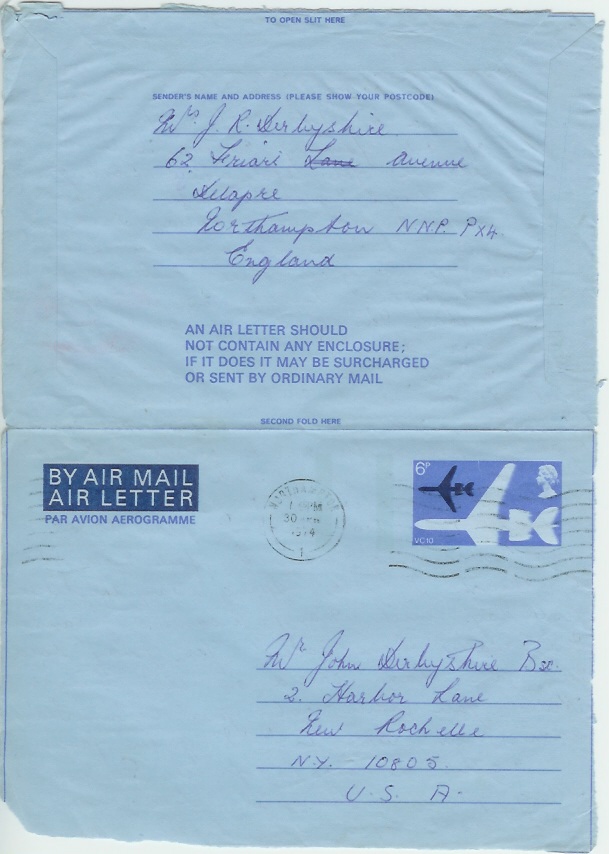 TO OPEN SLIT HERE
SENDER'S NAME AND ADDRESS (PLEASE SHOW YOUR POSTCODE)
Mrs J. R. Derbyshire
62, Friars Lane Avenue
Delapre
Northampton NNP. PX4.
England
AN AIR LETTER SHOULD
NOT CONTAIN ANY ENCLOSURE;
IF IT DOES IT MAY BE SURCHARGED
OR SENT BY ORDINARY MAIL
SECOND FOLD HERE
BY AIR MAIL
AIR LETTER
PAR AVION AEROGRAMME
30
1974
1
6P
VC10
Mr John Derbyshire Bsc.
2. Harbor Lane
New Rochelle
N.Y. 10805
U. S. A.